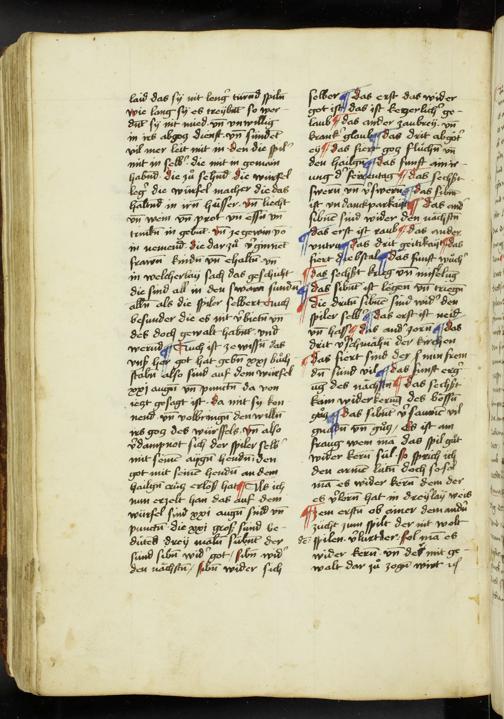 laid das sy nit leng turnd spiln
wie lang sy es treybnt so wer-
dnt sy nit mied vn vnwillig
in irs abgog dienst vn sundet
vil mer leit mit in den die spil
mit in selb die mit in gemain
habnd die zu sehnd die würfel
leg die würfel macher die das
haltnd in irn häuser vn liecht
vn wein vn prot vn essn vn
trinkn in gebnt vn
in nemend die dar zu
frawn kindn vn ehaltn vn
in welcherlay sach das geschicht
die sind all in den swarn sundn
alln als die spiler selber Auch
besunder die es nit v̈bietn vn
des doch gewalt habnt vnd
wernd Auch ist ze wissn das
vnß her got hat gebn xxi büch
stabn also sind auf dem würfel
xxi augn vn punctn da von
iezt gesagt ist da mit sy ken
nend vn volbringn den willn
irs gog des würfels vn also
v̈dampnot sich der spiler selb
mit seinē augn hendn den
got mit seinē hendn an dem
hailign crüg erlöst hat Als ich
nun erzelt han das auf dem
würfel sind xxi augn vnd vn
punctn die xxi groß sünd be-
dütet drey maln sübnt der
sünd sibn wid got sibn wid
den nächstn sibn wider sich
selber das erst das wider
got ist das ist kezerlich ge-
laub das ander zaubrey vn
krank glaub das drit abgöt
ey das fiert gog fluchn vn
den hailign das funft
ung d feirentag das sechst
swern vn v̈swern das sibn
ist vndanckparkait das and
sibnt sind wider den nächstn
das erst ist raub das ander
vntrew das drit geitikayt das
fiert diebstal das funft wůch
das sechst krieg vn mishelug
das sibnt ist liegen vn triegn
die dritn sibnt sind wid den
spiler selb das erst ist neid
vn hass das and zorn das
drit v̈schmähn der kirchen
das fiert sind der s
dn sünd vil das funft erg
ug des nächstn das sechst
kain widerkerug des bösn
gug das sibnt v̈saumt vil
gnadn vn gůg Es ist am
fraug wem ma das spil gůt
wider kern sül so sprich ich
den armē lütn doch so sol
ma es wider kern dem der
es v̈lorn hat in dreylay weis
Zem erstn ob ainer dem andn
zücht zum spilt der nit wolt
spilen v̈lürt der sol ma es
wider kern vn der mit ge-
walt dar zů zogn wirt